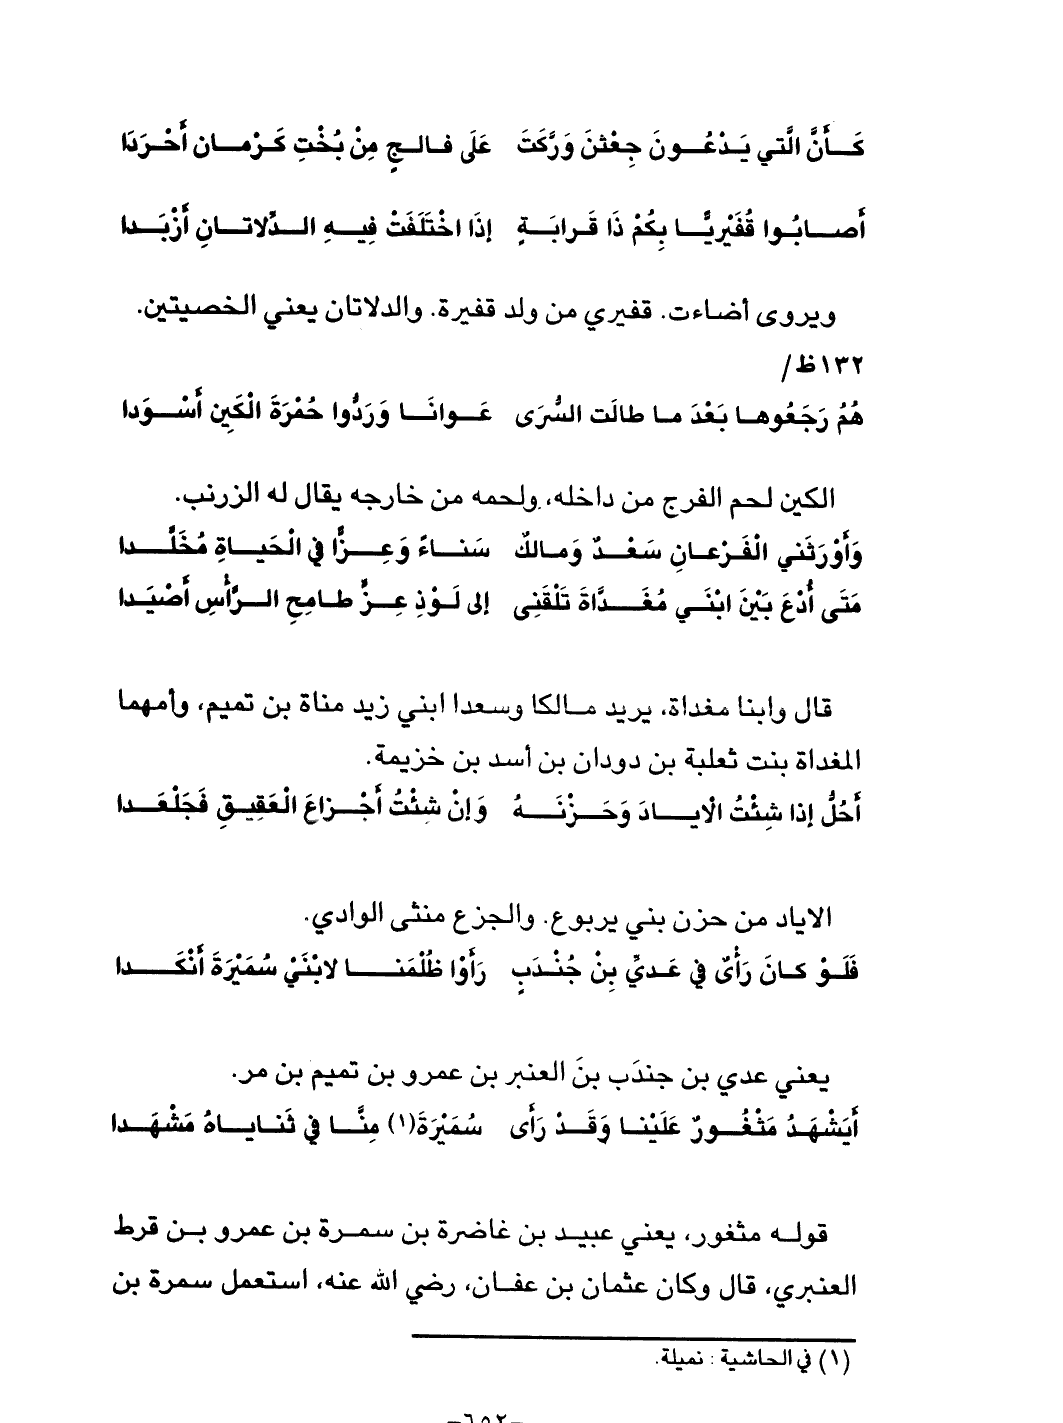 كَأَنَّ الَّتي يَدْعُونَ جِعْثنَ وَرَّكَتَ عَلَى فالجٍ مِنْ بُخْتِ كَرْمان أَحْرَدَا
أَصابُوا قُفَيْريًّا بِكُمْ ذَا قَرابَةٍ إذَا اخْتَلَفَتْ فِيهِ الدِّلاتانِ أَزْبَدا
ويروى أضاءت. قفيري من ولد قفيرة. والدلاتان يعني الخصيتين.
١٣٢ظ/
هُمُ رَجَعُوها بَعْدَ ما طالَت السُّرَى عَوانَا وَرَدُّوا حُمْرَةَ الْكَيِن أَسْوَدا
الكين لحم الفرج من داخله، ولحمه من خارجه يقال له الزرنب.
وَأَوْرَثَني الْفَرْعانِ سَعْدٌ وَمالكٌ سَناءً وَعِزًّا في الْحَياةِ مُخَلَّدا
مَتَى أُدْعَ بَيْنَ ابْنَي مُغَدَّاةَ تَلْقَنِى إلى لَوْذِ عِزٍّ طامِحِ الرَّأْسِ أَصْيَدا
قال وابنا مغداة، يريد مالكا وسعدا ابني زيد مناة بن تميم، وأمهما
المغداة بنت ثعلبة بن دودان بن أسد بن خزيمة.
أَحُلُّ إذا شِئْتُ الْايادَ وَحَزْنَهُ وَإنْ شِئْتُ أَجْزاعَ الْعَقِيقِ فَجَلْعَدا
الاياد من حزن بني يربوع. والجزع منثى الوادي.
فَلَوْ كانَ رَأْىٌ في عَديِّ بِنْ جُنْدَبٍ رَأَوْا ظُلْمَنا لابْنَيْ سُمَيْرَةَ أَنْكَدا
يعني عدي بن جندَب بنَ العنبر بن عمرو بن تميم بن مر.
أَيَشْهَدُ مَثْغُورٌ عَلَيْنا وَقَدْ رَأَى سُمَيْرَةَ(١) مِنَّا في ثَناياهُ مَشْهَدا
قوله مثغور، يعني عبيد بن غاضرة بن سمرة بن عمرو بن قرط
العنبري، قال وكان عثمان بن عفان، رضي الله عنه، استعمل سمرة بن
(١) في الحاشية : نميلة.
-٦٥٢-